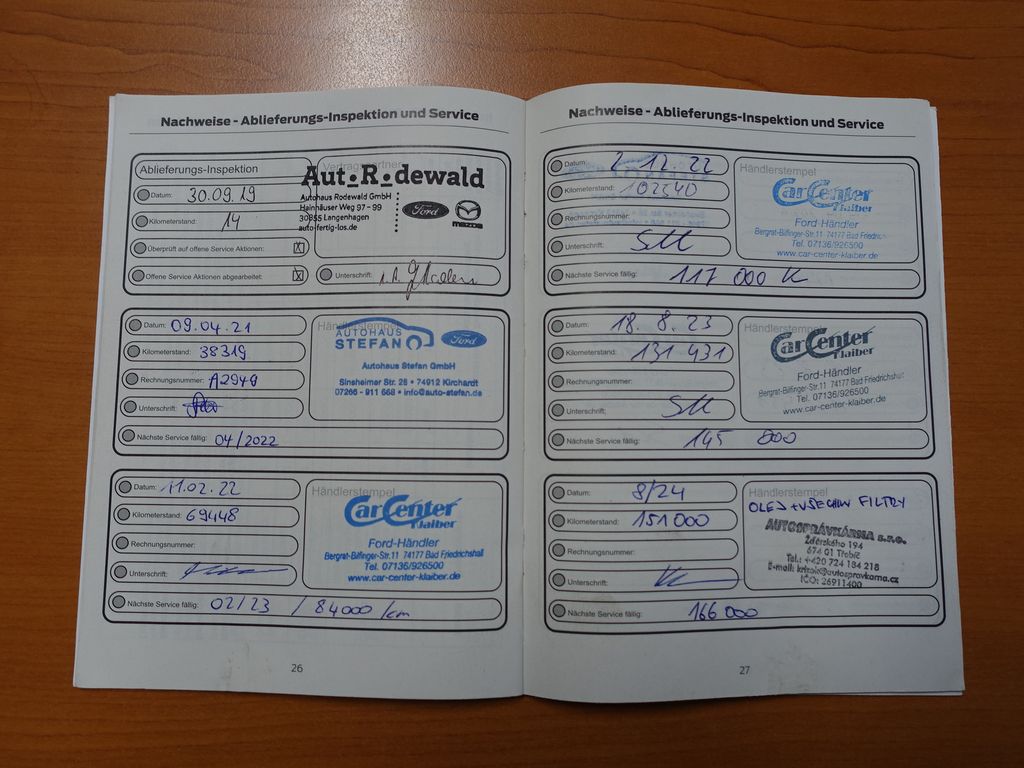 Nachweise - Ablieferungs-Inspektion und Service
Ablieferungs-Inspektion
Vertragspartner
Datum: 30.09.19
Kilometerstand: 14
Überprüft auf offene Service Aktionen: X
Offene Service Aktionen abgearbeitet: X
Aut_R_dewald
Autohaus Rodewald GmbH
Hainhäuser Weg 97 - 99
30855 Langenhagen
auto-fertig-los.de
Ford
mazda
Unterschrift:
Datum: 09.04.21
Kilometerstand: 38319
Rechnungsnummer: A2940
Unterschrift:
Nächste Service fällig: 04/2022
Händlerstempel
AUTOHAUS
STEFAN
Ford
Autohaus Stefan GmbH
Sinsheimer Str. 28 • 74912 Kirchardt
07266 - 911 668 • info@auto-stefan.de
Datum: 11.02.22
Kilometerstand: 69448
Rechnungsnummer:
Unterschrift:
Nächste Service fällig: 02/23 / 84000 km
Händlerstempel
CarCenter
Klaiber
Ford-Händler
Bergrat-Bilfinger-Str.11 74177 Bad Friedrichshall
Tel. 07136/926500
www.car-center-klaiber.de
26
Nachweise - Ablieferungs-Inspektion und Service
Datum: 2.12.22
Kilometerstand: 102340
Rechnungsnummer:
Unterschrift:
Nächste Service fällig: 117 000 K
Händlerstempel
CarCenter
Klaiber
Ford-Händler
Bergrat-Bilfinger-Str.11 74177 Bad Friedrich
Tel. 07136/926500
www.car-center-klaiber.de
Datum: 18.8.23
Kilometerstand: 131 431
Rechnungsnummer:
Unterschrift:
Nächste Service fällig: 145 000
Händlerstempel
CarCenter
Klaiber
Ford-Händler
Bergrat-Bilfinger-Str.11 74177 Bad Friedrichshall
Tel. 07136/926500
www.car-center-klaiber.de
Datum: 8/24
Kilometerstand: 151000
Rechnungsnummer:
Unterschrift:
Nächste Service fällig: 166 000
Händlerstempel
OLEJ + VŠECHNY FILTRY
AUTOSPRÁVKÁRNA s.r.o.
Žďárského 194
674 01 Třebíč
Tel.: +420 724 184 218
E-mail:
IČO: 26911400
27